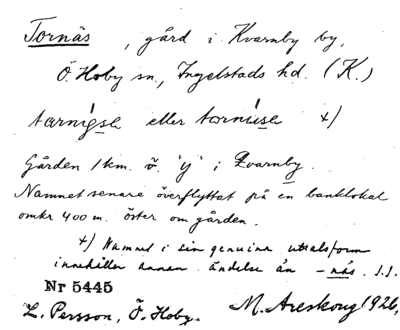 Tornäs, gård i Kvarnby by,
Ö. Hoby sn, Ingelstads hd. (K.)
tarnigsa eller tornusa x)
Gården 1 km. ö. "y" i Kvarnby.
Namnet senare överflyttat på en banklokal
omkr 400 m. öster om gården.
x) Namnet i sin genuina uttalsform
innehåller annan ändelse än -näs. I.I.
Nr 5445
L. Persson, Ö. Hoby. M. Areskoug 1926,